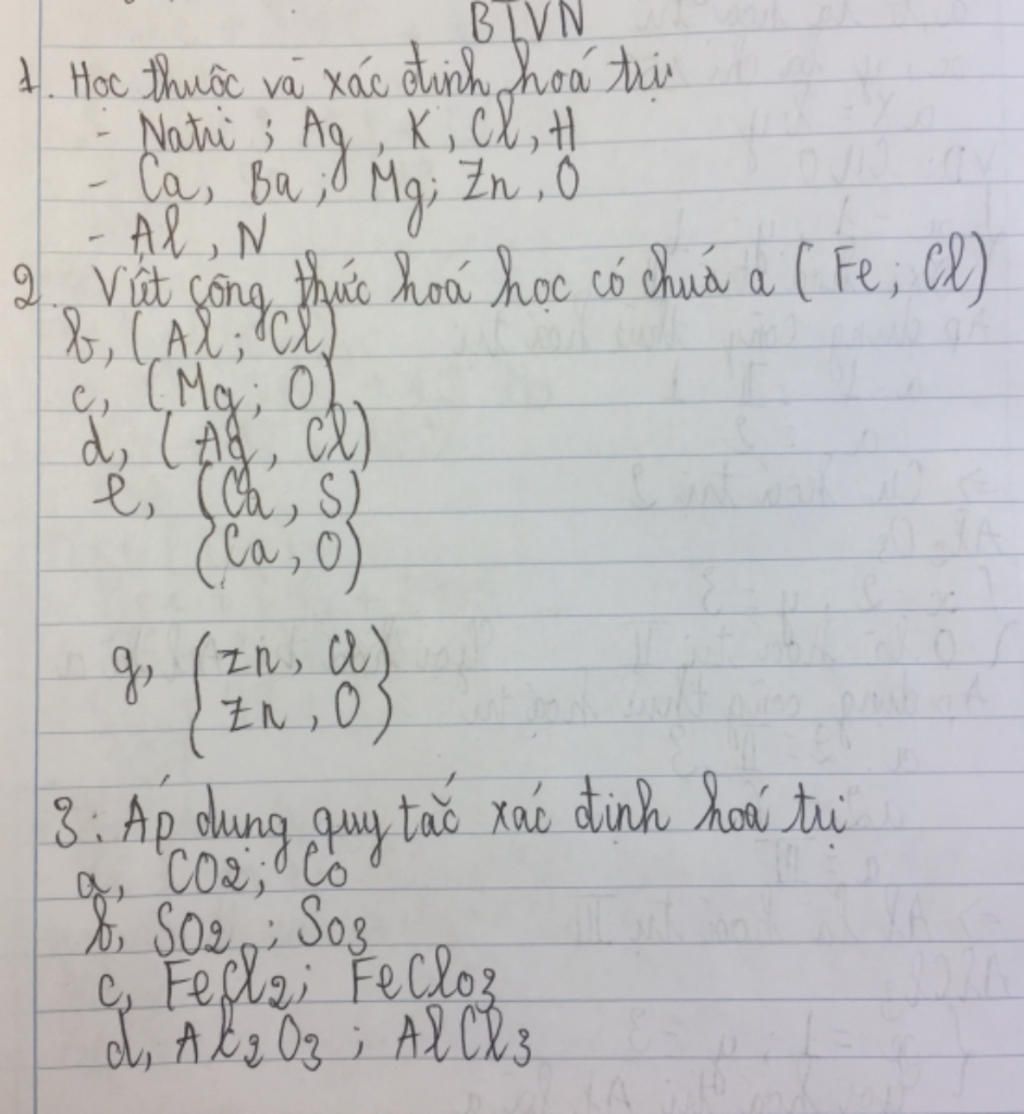 BTVN
1. Học thuộc và xác định hoá trị
- Natri ; Ag , K , Cl , H
- Ca , Ba ; Mg ; Zn , O
- Al , N
2. Viết công thức hoá học có chứa a ( Fe ; Cl )
b, ( Al ; Cl )
c, ( Mg ; O )
d, ( Ag , Cl )
e, ( Ca , S )
( Ca , O )
g, ( Zn , Cl )
( Zn , O )
3 : Áp dụng quy tắc xác định hoá trị
a, CO2 ; Co
b, SO2 ; SO3
c, FeCl2 ; FeClO3
d, Al2O3 ; AlCl3